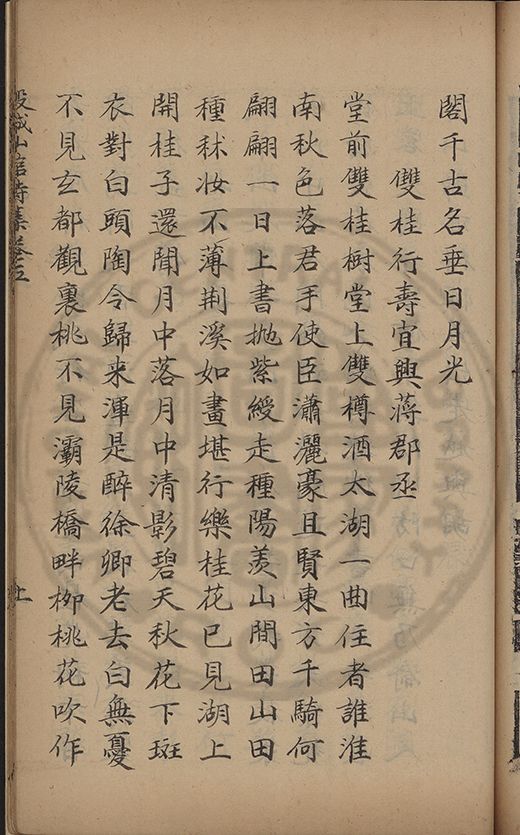 閣千古名垂日月光
雙桂行壽宜興蔣郡丞
堂前雙桂樹堂上雙樽酒太湖一曲住者誰淮
南秋色落君手使臣瀟灑豪且賢東方千騎何
翩翩一日上書拋紫綬走種陽羨山間田山田
種秫妝不薄荆溪如畫堪行樂桂花已見湖上
開桂子還聞月中落月中清影碧天秋花下斑
衣對白頭陶令歸来渾是醉徐卿老去白無憂
不見玄都觀裏桃不見灞陵橋畔栁桃花吹作
穀城山館詩集卷五